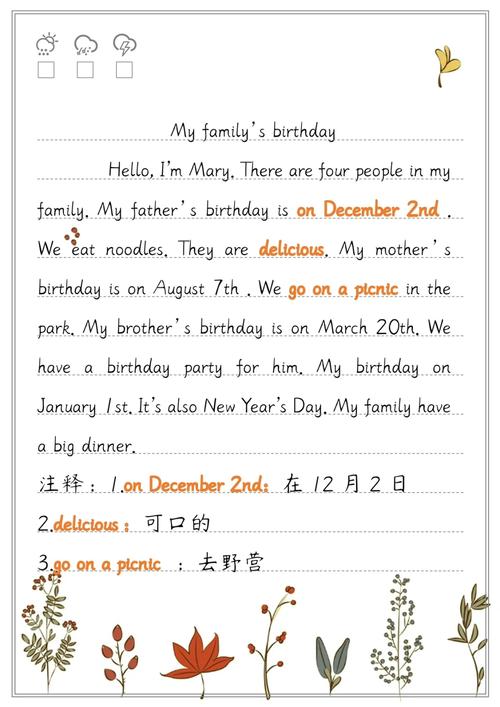 My family's birthday
Hello, I'm Mary. There are four people in my
family. My father's birthday is on December 2nd .
We eat noodles. They are delicious. My mother's
birthday is on August 7th . We go on a picnic in the
park. My brother's birthday is on March 20th. We
have a birthday party for him. My birthday on
January 1st. It's also New Year's Day. My family have
a big dinner.
注释：1.on December 2nd：在 12 月 2 日
2.delicious：可口的
3.go on a picnic ：去野营